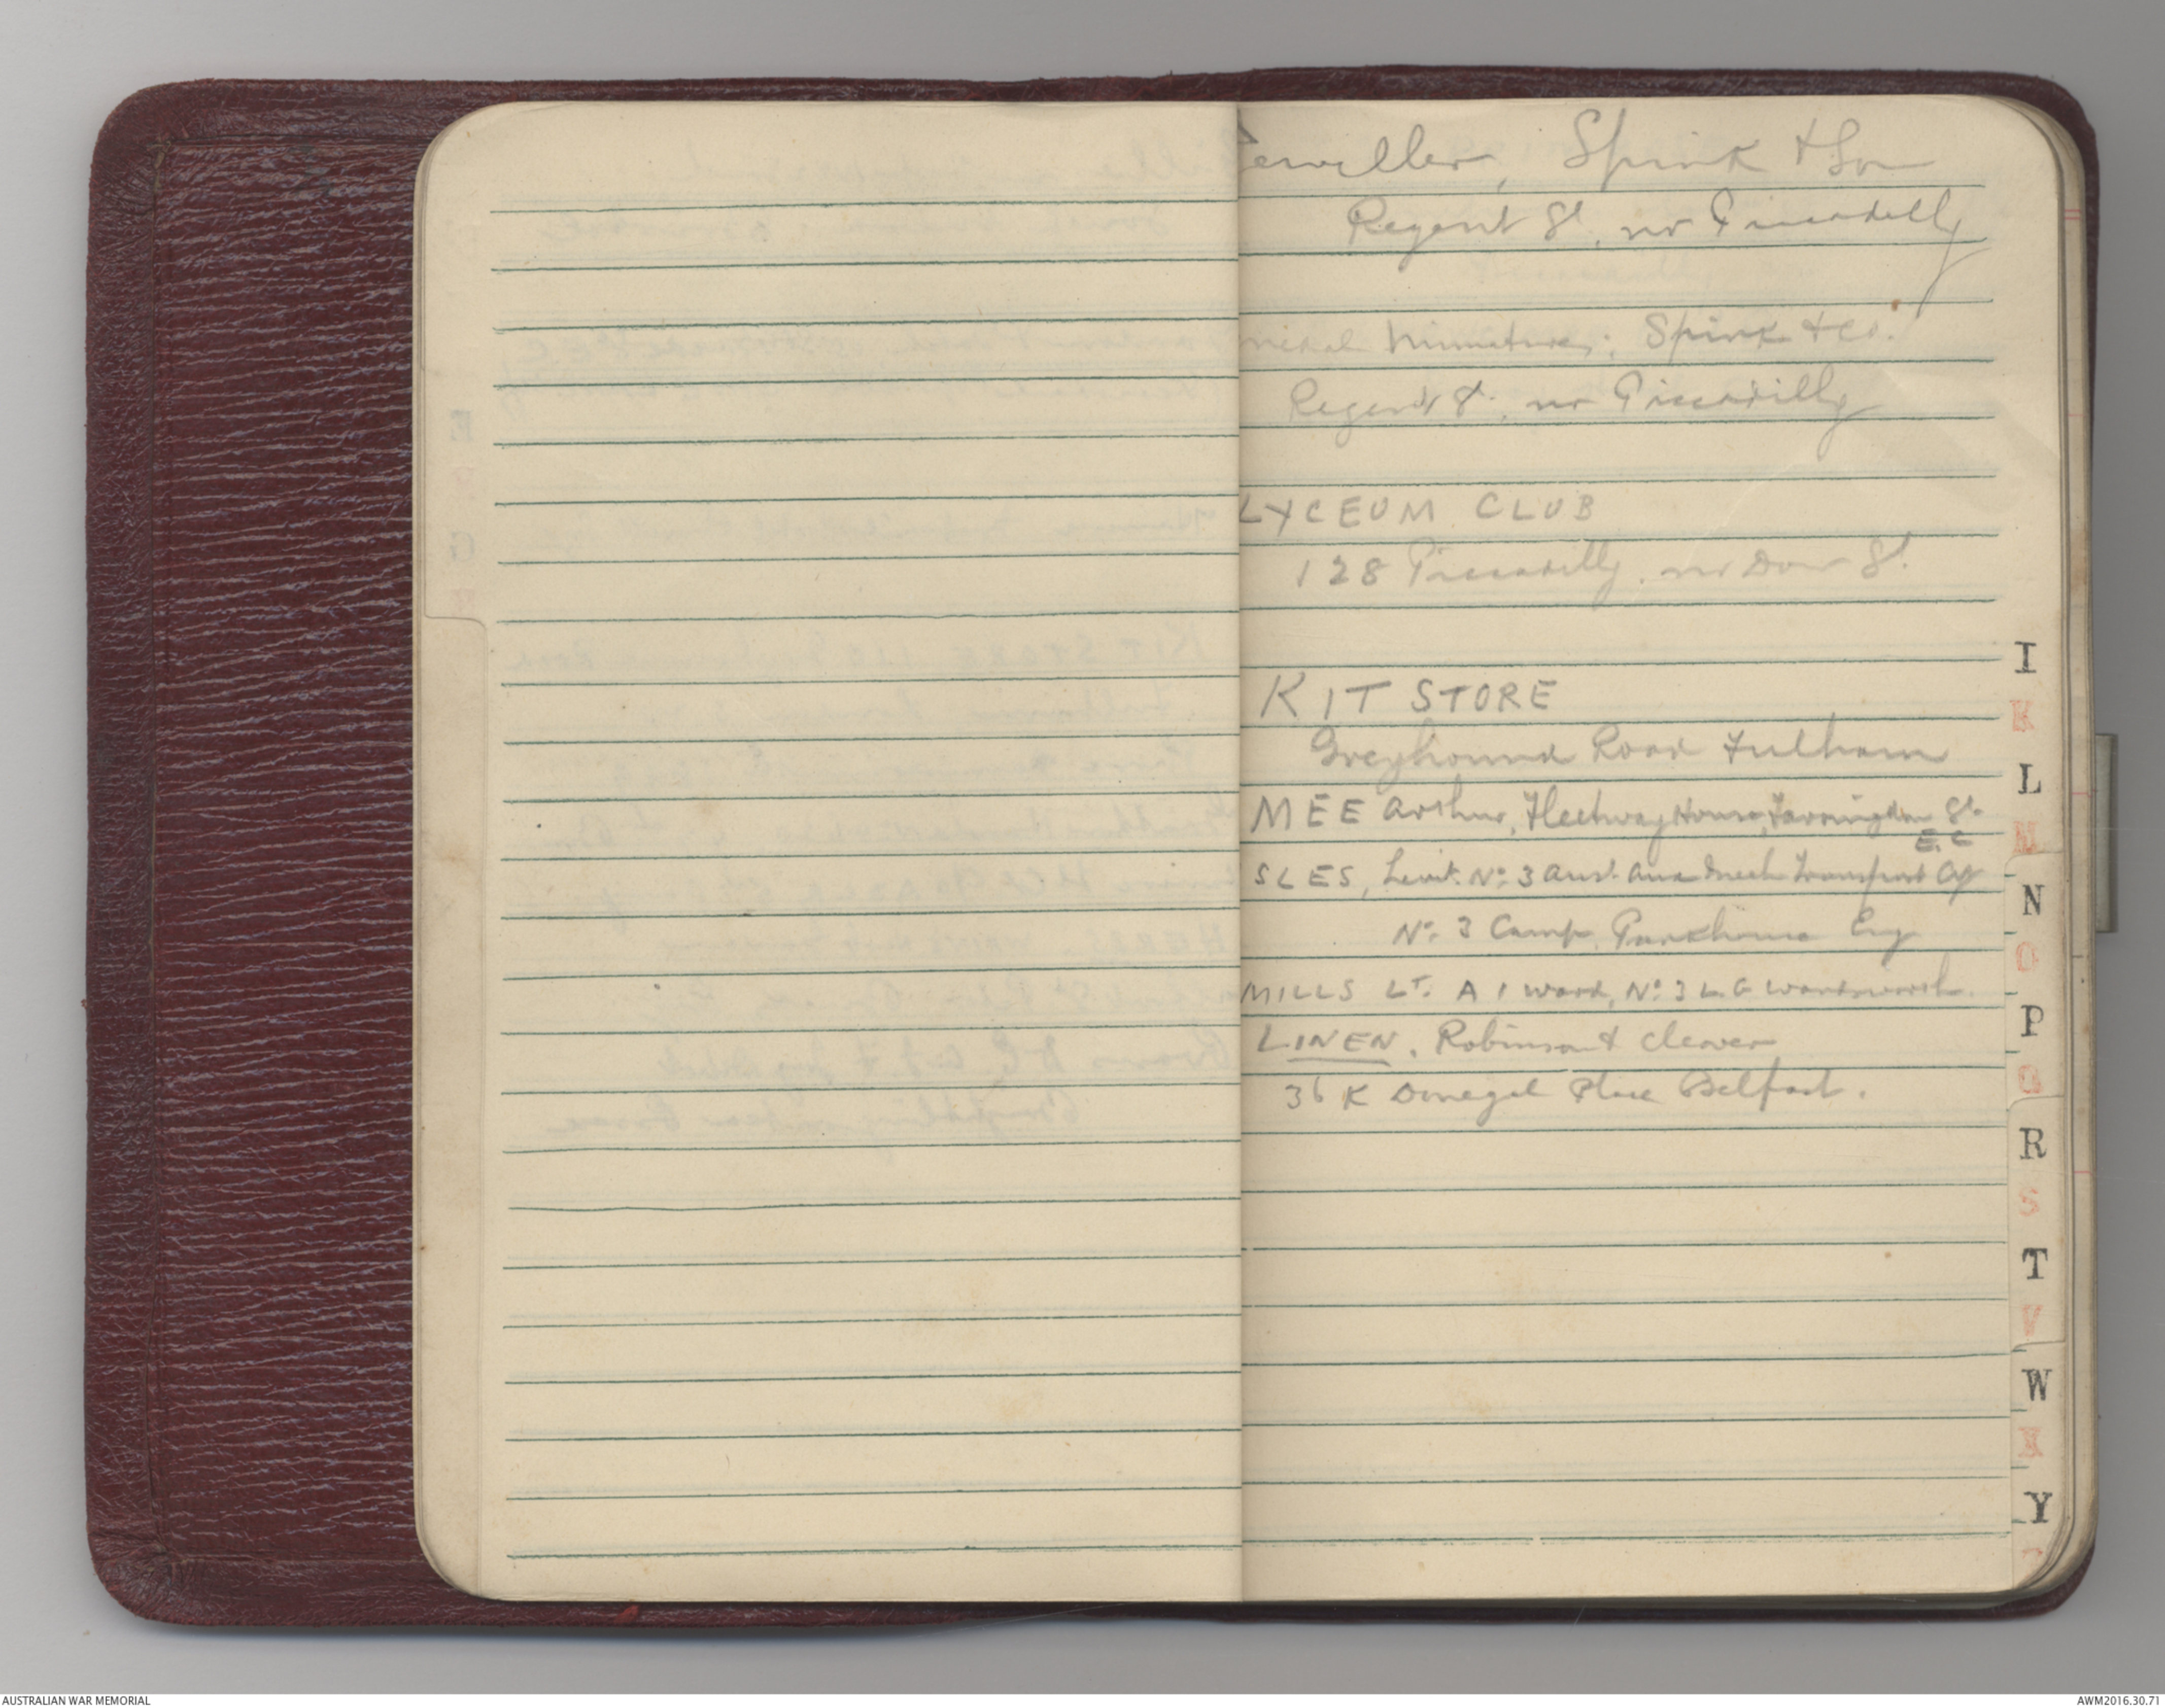 Jeweller, Spink & Son
Regent St. nr Piccadilly
Miniatures; Spink & Co.
Regent St. nr Piccadilly
LYCEUM CLUB
128 Piccadilly. nr Dover St.
KIT STORE
Greyhound Road Fulham
MEE Arthur, Fleetway House, Farringdon St.
E.C
SLES, Lieut. No. 3 Aust. Aux Mech Transport Coy
No. 3 Camp. Parkhouse Eng
MILLS LT. A 1 Ward, No. 3 L.G Wandsworth.
LINEN. Robinson & Cleaver
36 K Donegal Place Belfast.
I
K
L
M
N
O
P
Q
R
S
T
V
W
X
Y
AUSTRALIAN WAR MEMORIAL
AWM2016.30.71